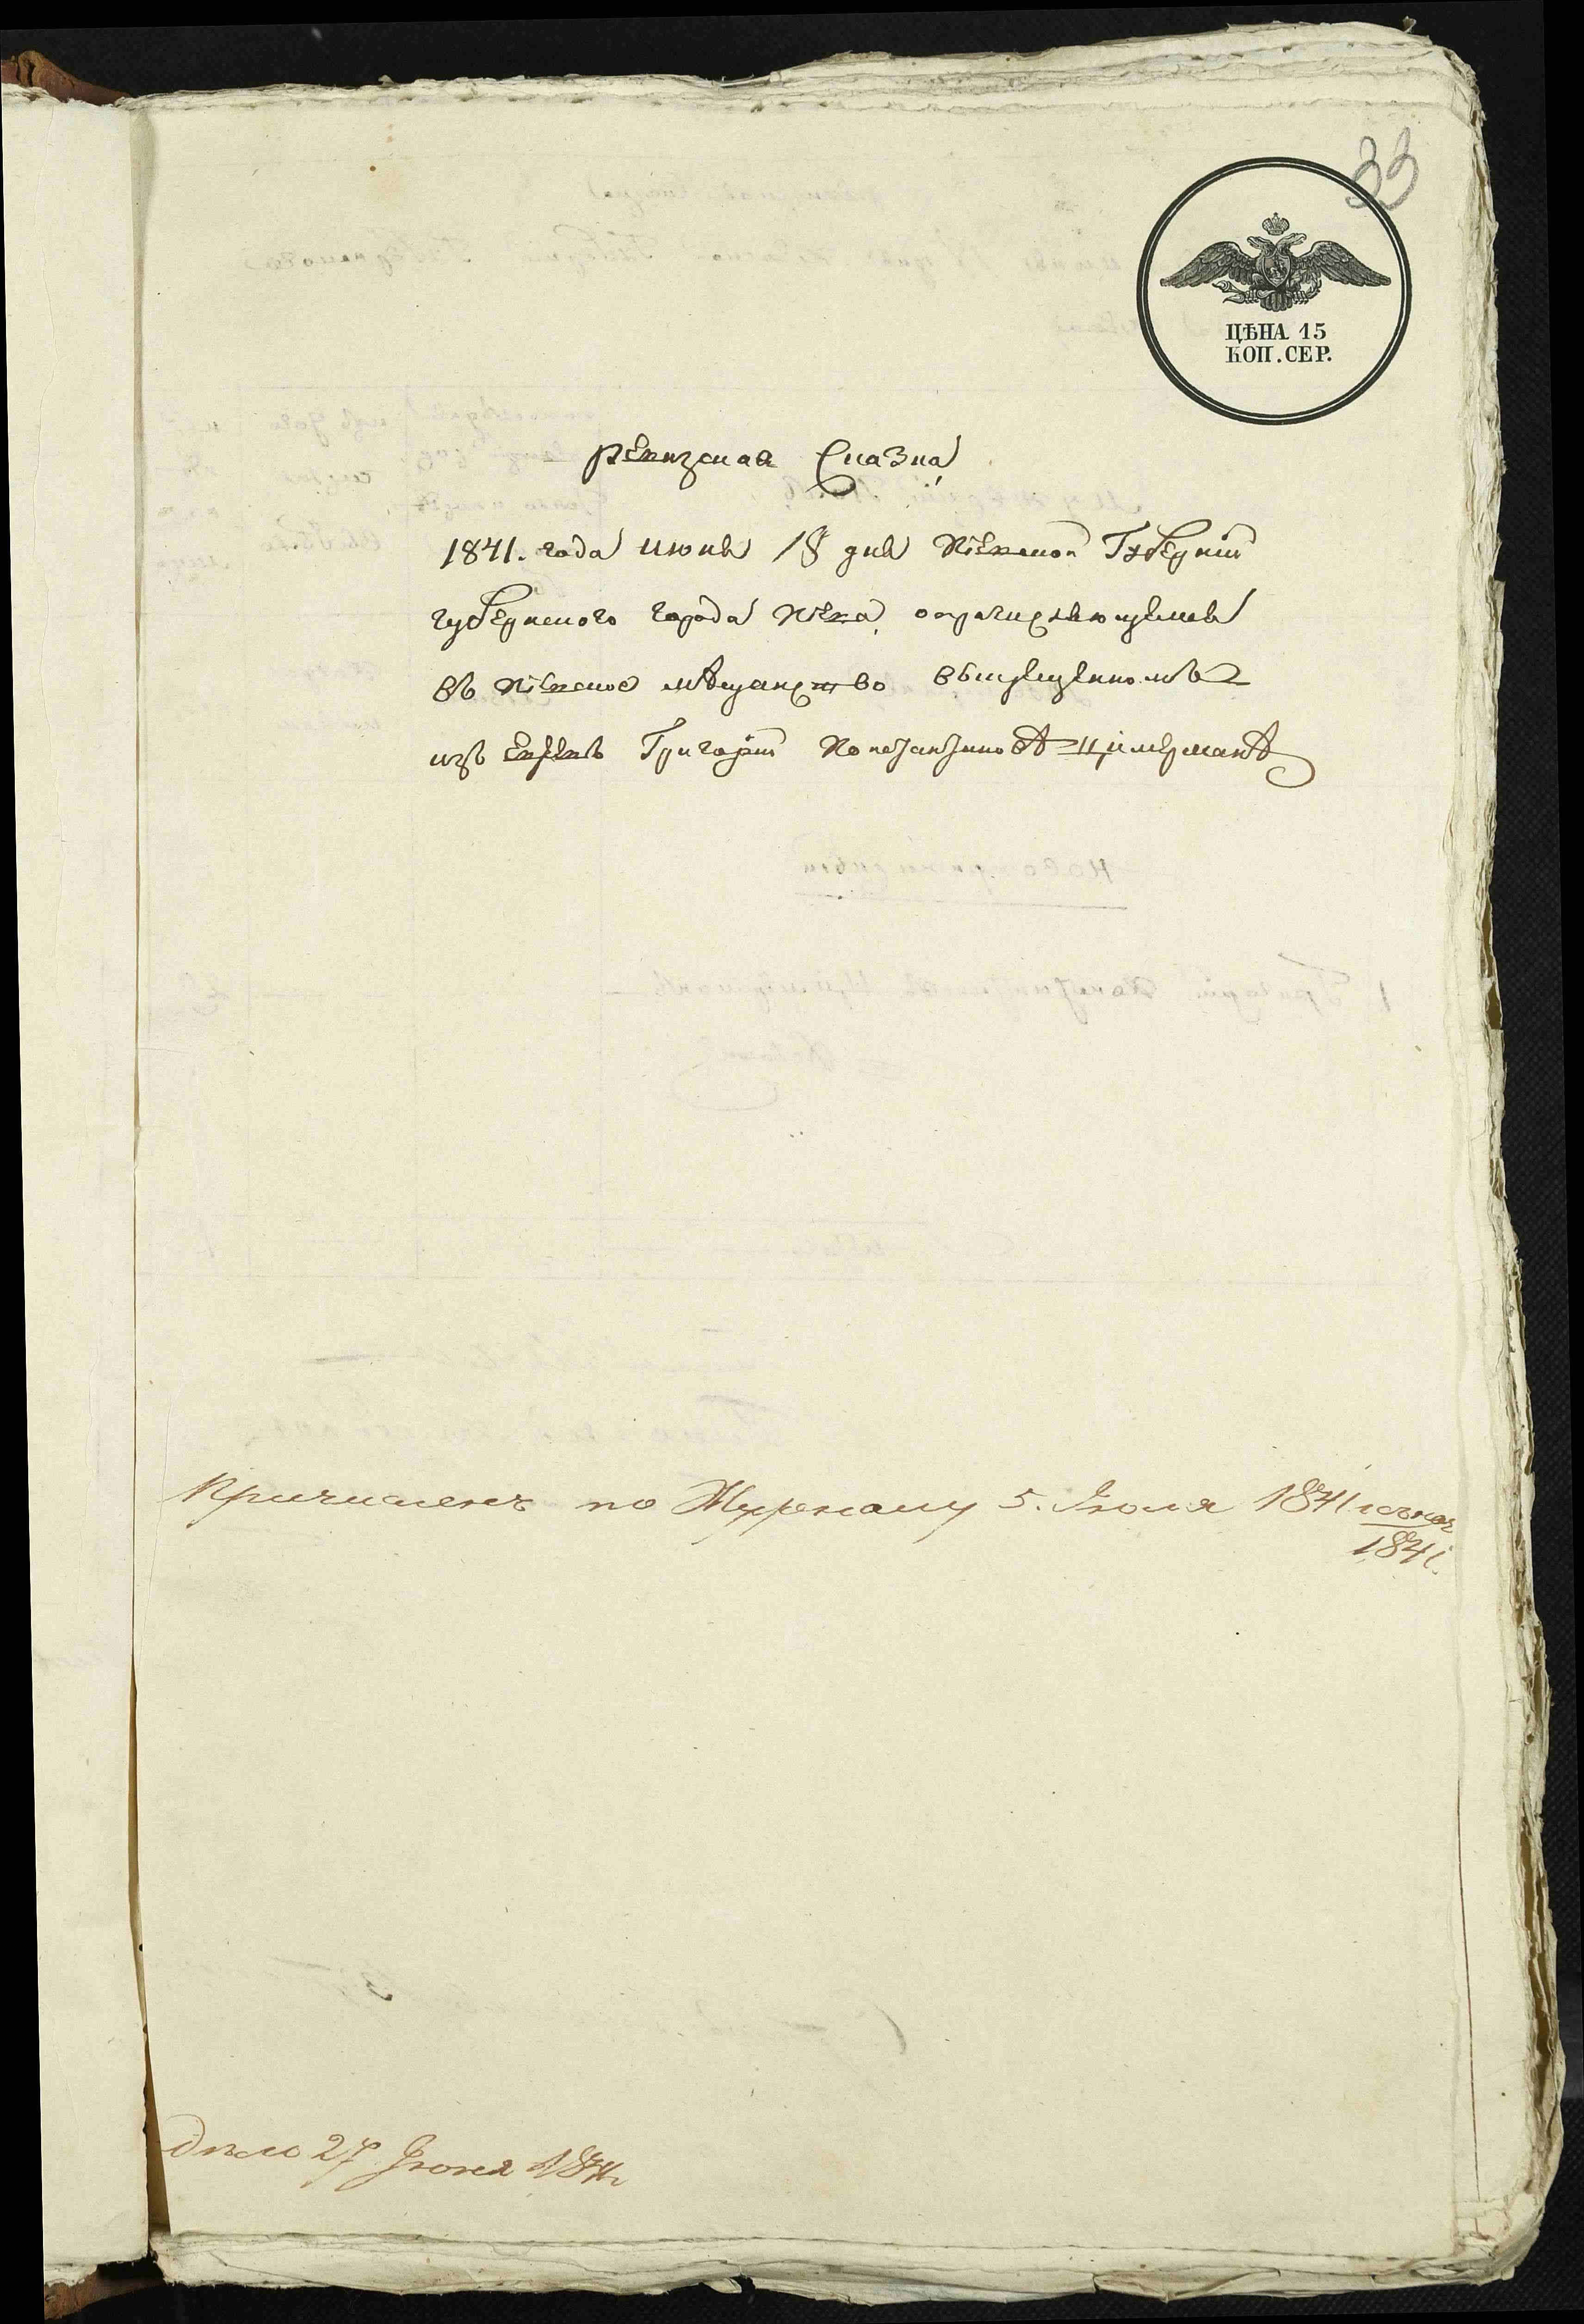 33
ЦѢНА 15
КОП. СЕР.
Ревизская Сказка
1841. года июня 18 дня Киевской Губерніи
губернского города Киева, о причисляющемся
въ Киевское мѣщанство выкрещенномъ
изъ Евреевъ Григоріи Константиновѣ Цимерманѣ
Причисленъ по Журналу 5. Іюля 1841
1841
дѣло 27 Іюня 1841